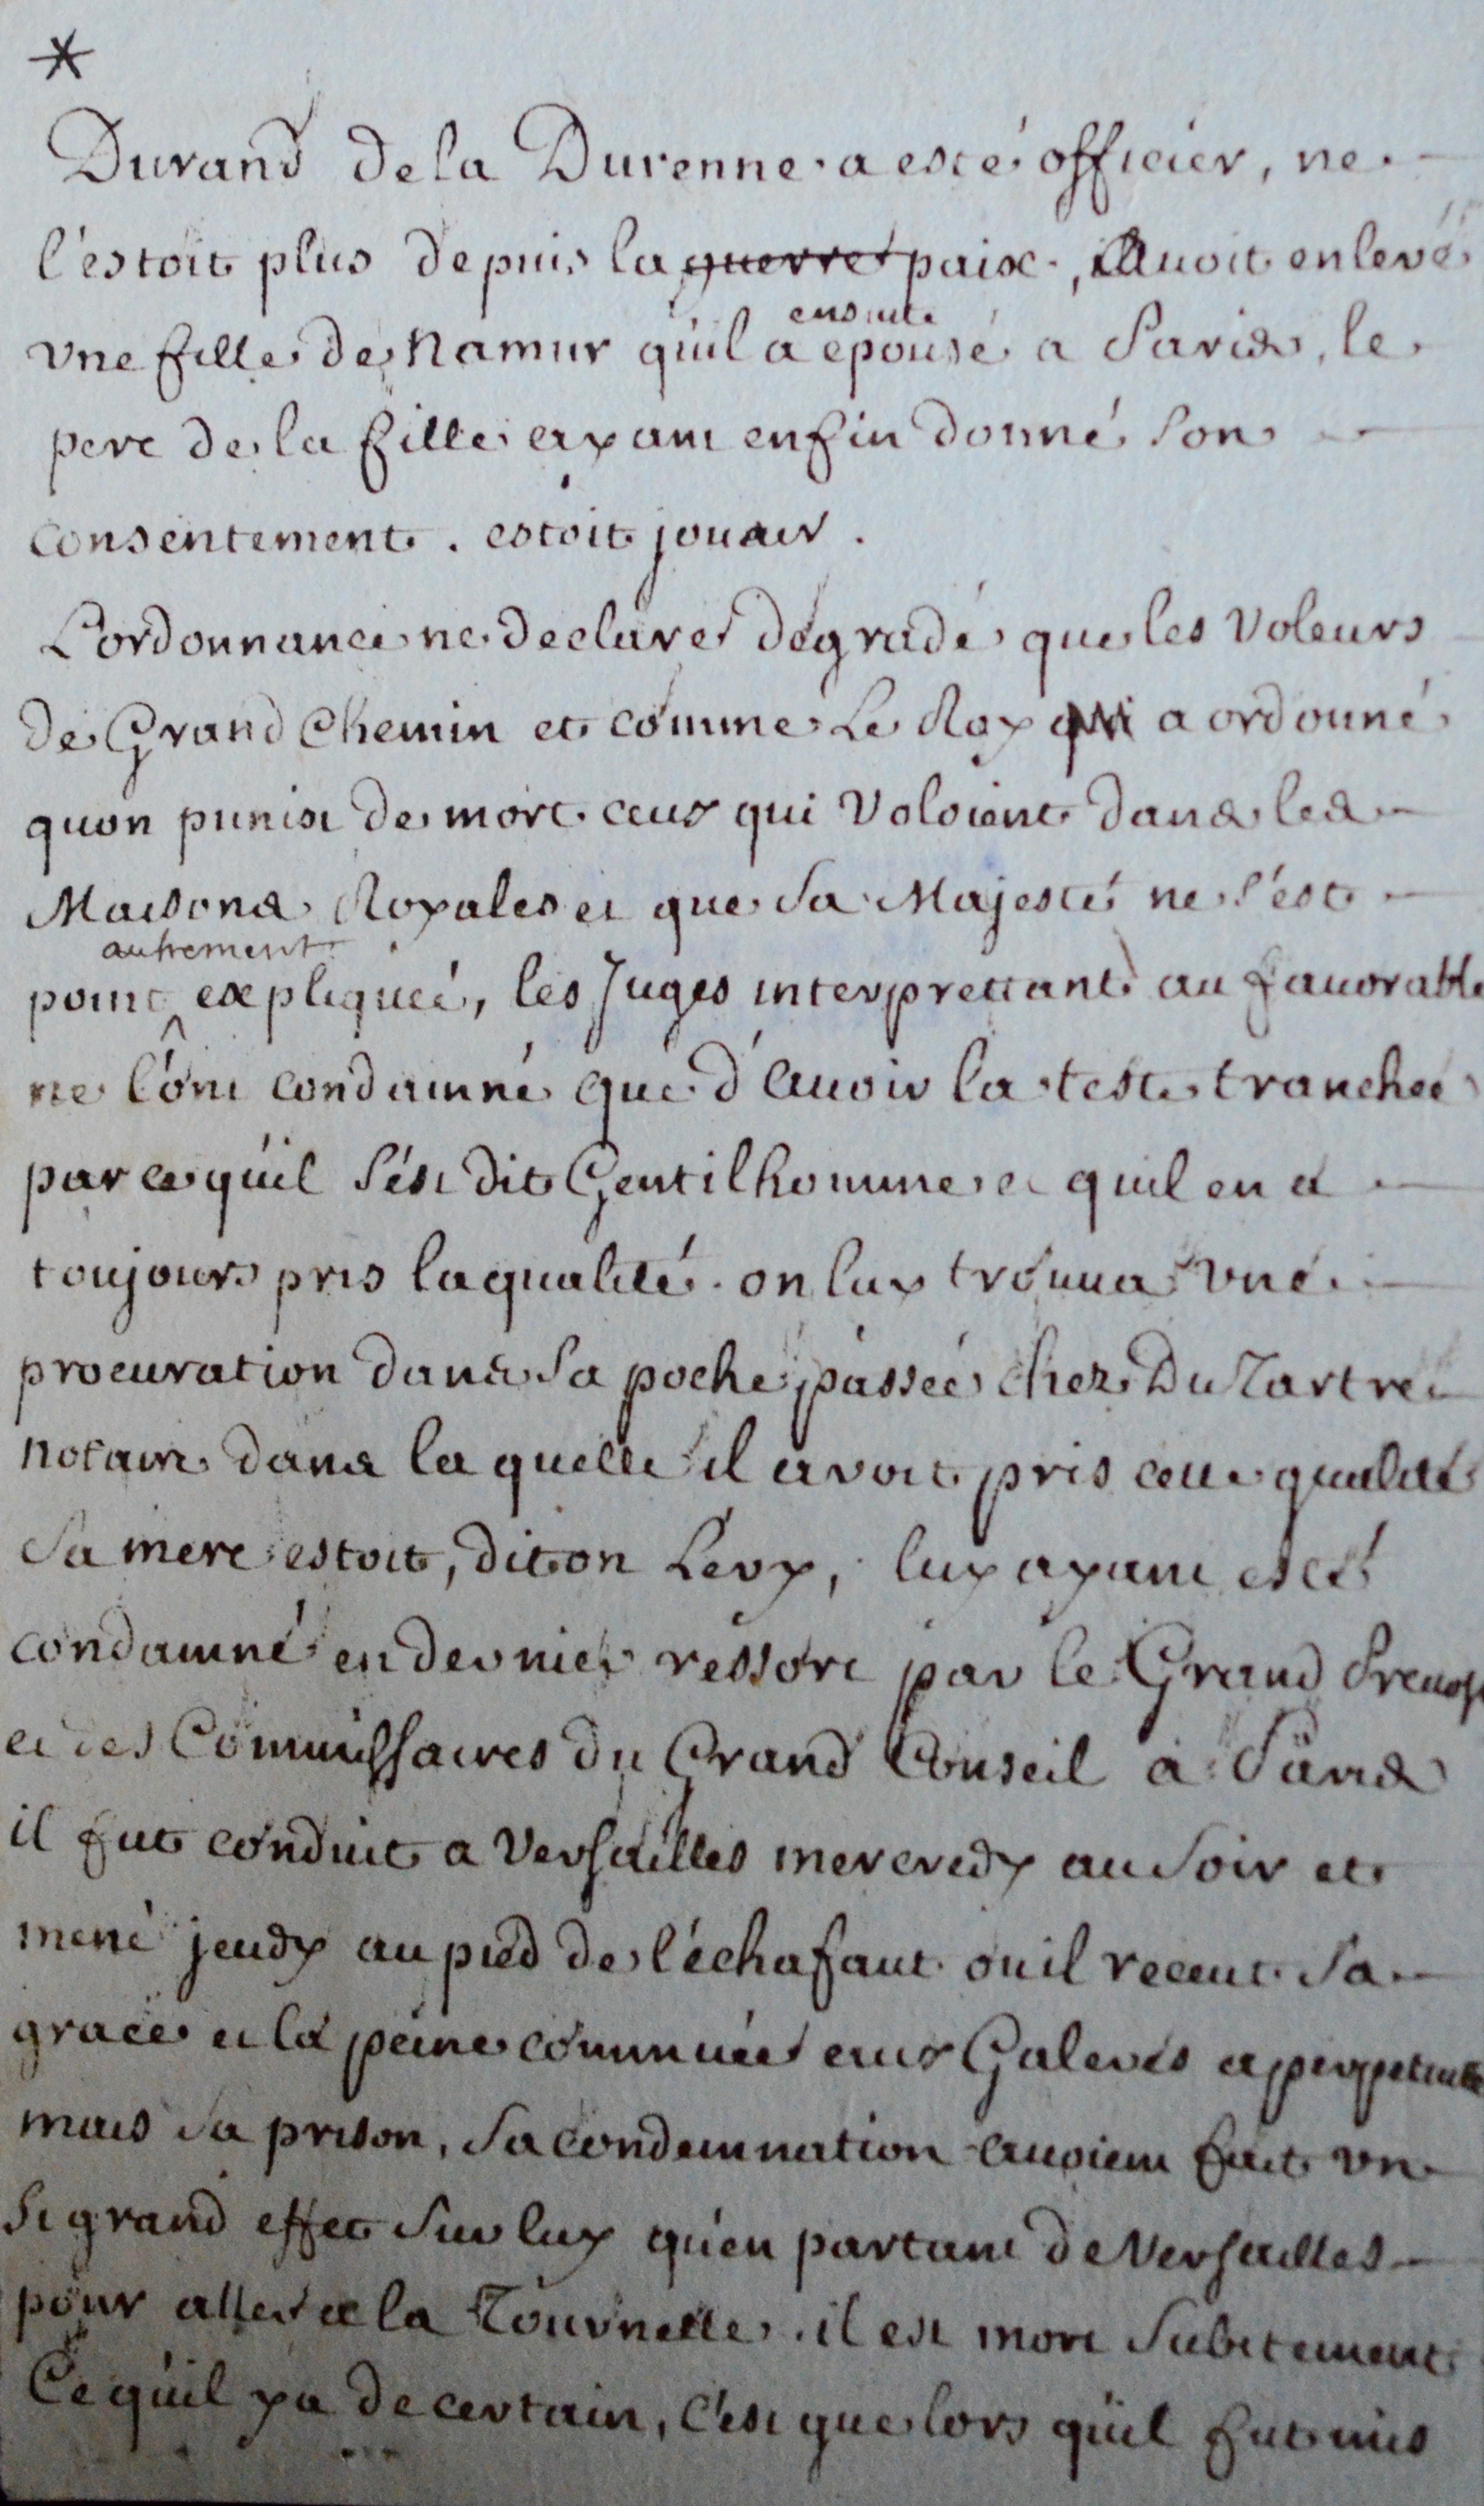 *
Durand de la Durenne a esté officier, ne
l'estoit plus depuis la guerre paix, Auoit enlevé
vne fille de Namur qu'il a ensuite epousé a Paris, le
pere de la fille ayant enfin donné son
consentement. estoit joueur.
L'ordonnance ne declare degradé que les Voleurs
de Grand Chemin et comme Le Roy qui a ordonné
quon punist de mort ceux qui Voloient dans les
Maisons Royales et que Sa Majesté ne s'est
point autrement expliqueé, les Juges interprettant au fauorable
ne l'ont condamné que d'auoir la teste tranchée
parce qu'il s'est dit Gentilhomme et quil en a
toujours pris la qualité. on luy trouua vne
procuration dans sa poche passée chez Du Tartre
notaire dans la quelle il avoit pris cette qualité
Sa mere estoit, dit on Levy, luy ayant esté
condamné en dernier ressort par le Grand Preuost
et des Commissaires du Grand Conseil à Paris
il fut conduit a Versailles mercredy au soir et
mené jeudy au pied de l'échafaut ou il receut sa
grace et la peine commuée aux Galeres a perpetuité
mais sa prison, sa condemnation auoient fait vn
si grand effet sur luy qu'en partant de Versailles
pour aller a la Tournelle. il est mort subitement
Ce qu'il ya de certain, c'est que lors qu'il fut mis